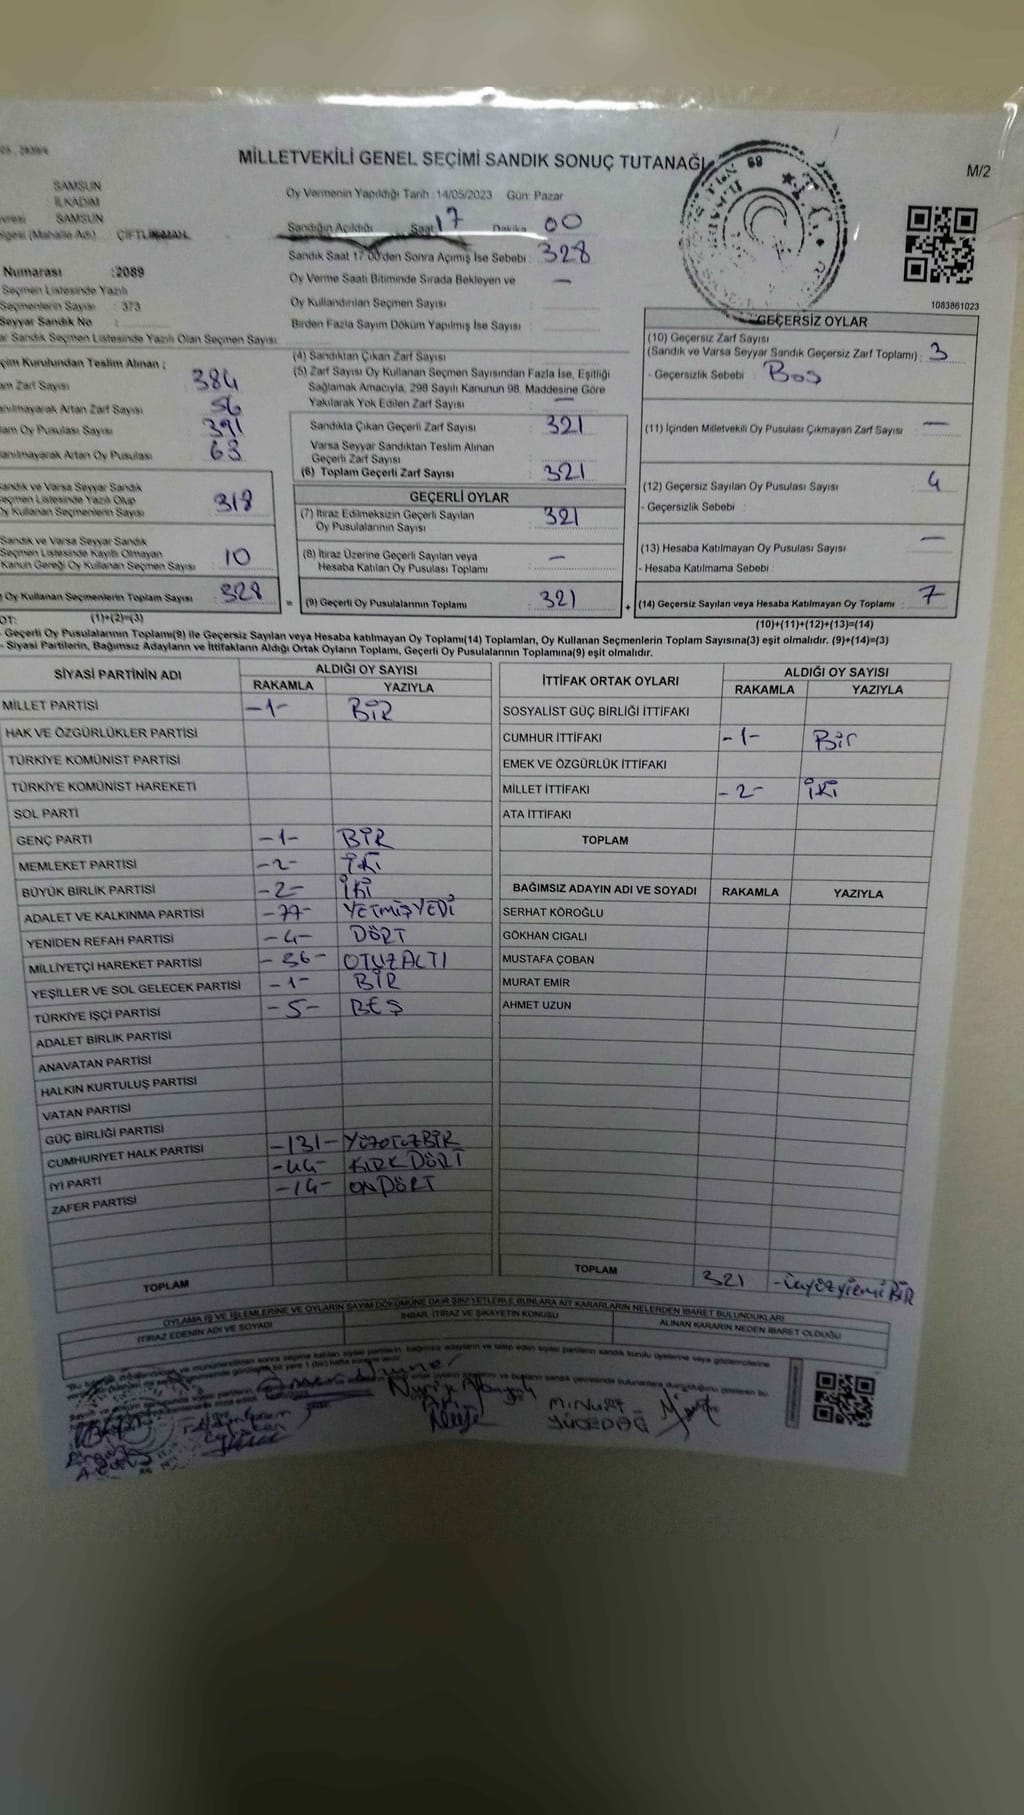 MİLLETVEKİLİ GENEL SEÇİMİ SANDIK SONUÇ TUTANAĞI
M/2
SAMSUN
İLKADIM
SAMSUN
(Mahalle Adı) : ÇİFTLİK MAH.
Numarası :2089
Seçmen Listesinde Yazılı
Seçmenlerin Sayısı : 373
Seyyar Sandık No :
Sandık Seçmen Listesinde Yazılı Olan Seçmen Sayısı
Oy Vermenin Yapıldığı Tarih : 14/05/2023 Gün: Pazar
Sandığın Açıldığı Saat 17 Dakika 00
Sandık Saat 17.00'den Sonra Açımış İse Sebebi : 328
Oy Verme Saati Bitiminde Sırada Bekleyen ve —
Oy Kullandırılan Seçmen Sayısı
Birden Fazla Sayım Döküm Yapılmış İse Sayısı
1083861023
Kurulundan Teslim Alınan ;
Zarf Sayısı 384
Artan Zarf Sayısı 56
Oy Pusulası Sayısı 391
Artan Oy Pusulası 63
Sandık ve Varsa Seyyar Sandık
Seçmen Listesinde Yazılı Olup
Oy Kullanan Seçmenlerin Sayısı 318
Sandık ve Varsa Seyyar Sandık
Seçmen Listesinde Kayıtlı Olmayan
Kanun Gereği Oy Kullanan Seçmen Sayısı 10
Oy Kullanan Seçmenlerin Toplam Sayısı 328
(1)+(2)=(3)
(4) Sandıktan Çıkan Zarf Sayısı
(5) Zarf Sayısı Oy Kullanan Seçmen Sayısından Fazla İse, Eşitliği
Sağlamak Amacıyla, 298 Sayılı Kanunun 98. Maddesine Göre
Yakılarak Yok Edilen Zarf Sayısı —
Sandıkta Çıkan Geçerli Zarf Sayısı 321
Varsa Seyyar Sandıktan Teslim Alınan
Geçerli Zarf Sayısı
(6) Toplam Geçerli Zarf Sayısı 321
GEÇERLİ OYLAR
(7) İtiraz Edilmeksizin Geçerli Sayılan
Oy Pusulalarının Sayısı 321
(8) İtiraz Üzerine Geçerli Sayılan veya
Hesaba Katılan Oy Pusulası Toplamı —
= (9) Geçerli Oy Pusulalarının Toplamı 321
GEÇERSİZ OYLAR
(10) Geçersiz Zarf Sayısı
(Sandık ve Varsa Seyyar Sandık Geçersiz Zarf Toplamı) : 3
- Geçersizlik Sebebi : Boş
(11) İçinden Milletvekili Oy Pusulası Çıkmayan Zarf Sayısı —
(12) Geçersiz Sayılan Oy Pusulası Sayısı 4
- Geçersizlik Sebebi :
(13) Hesaba Katılmayan Oy Pusulası Sayısı —
- Hesaba Katılmama Sebebi :
+ (14) Geçersiz Sayılan veya Hesaba Katılmayan Oy Toplamı : 7
(10)+(11)+(12)+(13)=(14)
- Geçerli Oy Pusulalarının Toplamı(9) ile Geçersiz Sayılan veya Hesaba katılmayan Oy Toplamı(14) Toplamları, Oy Kullanan Seçmenlerin Toplam Sayısına(3) eşit olmalıdır. (9)+(14)=(3)
- Siyasi Partilerin, Bağımsız Adayların ve İttifakların Aldığı Ortak Oyların Toplamı, Geçerli Oy Pusulalarının Toplamına(9) eşit olmalıdır.
SİYASİ PARTİNİN ADI ALDIĞI OY SAYISI
RAKAMLA YAZIYLA
MİLLET PARTİSİ -1- BİR
HAK VE ÖZGÜRLÜKLER PARTİSİ
TÜRKİYE KOMÜNİST PARTİSİ
TÜRKİYE KOMÜNİST HAREKETİ
SOL PARTİ
GENÇ PARTİ -1- BİR
MEMLEKET PARTİSİ -2- İKİ
BÜYÜK BİRLİK PARTİSİ -2- İKİ
ADALET VE KALKINMA PARTİSİ -77- YETMİŞYEDİ
YENİDEN REFAH PARTİSİ -4- DÖRT
MİLLİYETÇİ HAREKET PARTİSİ -36- OTUZALTI
YEŞİLLER VE SOL GELECEK PARTİSİ -1- BİR
TÜRKİYE İŞÇİ PARTİSİ -5- BEŞ
ADALET BİRLİK PARTİSİ
ANAVATAN PARTİSİ
HALKIN KURTULUŞ PARTİSİ
VATAN PARTİSİ
GÜÇ BİRLİĞİ PARTİSİ
CUMHURİYET HALK PARTİSİ -131- YÜZOTUZBİR
İYİ PARTİ -44- KIRK DÖRT
ZAFER PARTİSİ -14- ONDÖRT
TOPLAM
İTTİFAK ORTAK OYLARI ALDIĞI OY SAYISI
RAKAMLA YAZIYLA
SOSYALİST GÜÇ BİRLİĞİ İTTİFAKI
CUMHUR İTTİFAKI -1- Bir
EMEK VE ÖZGÜRLÜK İTTİFAKI
MİLLET İTTİFAKI -2- İKİ
ATA İTTİFAKI
TOPLAM
BAĞIMSIZ ADAYIN ADI VE SOYADI RAKAMLA YAZIYLA
SERHAT KÖROĞLU
GÖKHAN CIGALI
MUSTAFA ÇOBAN
MURAT EMİR
AHMET UZUN
TOPLAM 321 -üçyüzyirmi BİR
OYLAMA İŞ VE İŞLEMLERİNE VE OYLARIN SAYIM DÖKÜMÜNE DAİR ŞİKAYETLERLE BUNLARA AİT KARARLARIN NELERDEN İBARET BULUNDUKLARI
İTİRAZ EDENİN ADI VE SOYADI İHBAR, İTİRAZ VE ŞİKAYETİN KONUSU ALINAN KARARIN NEDEN İBARET OLDUĞU
YÜCEDAĞ